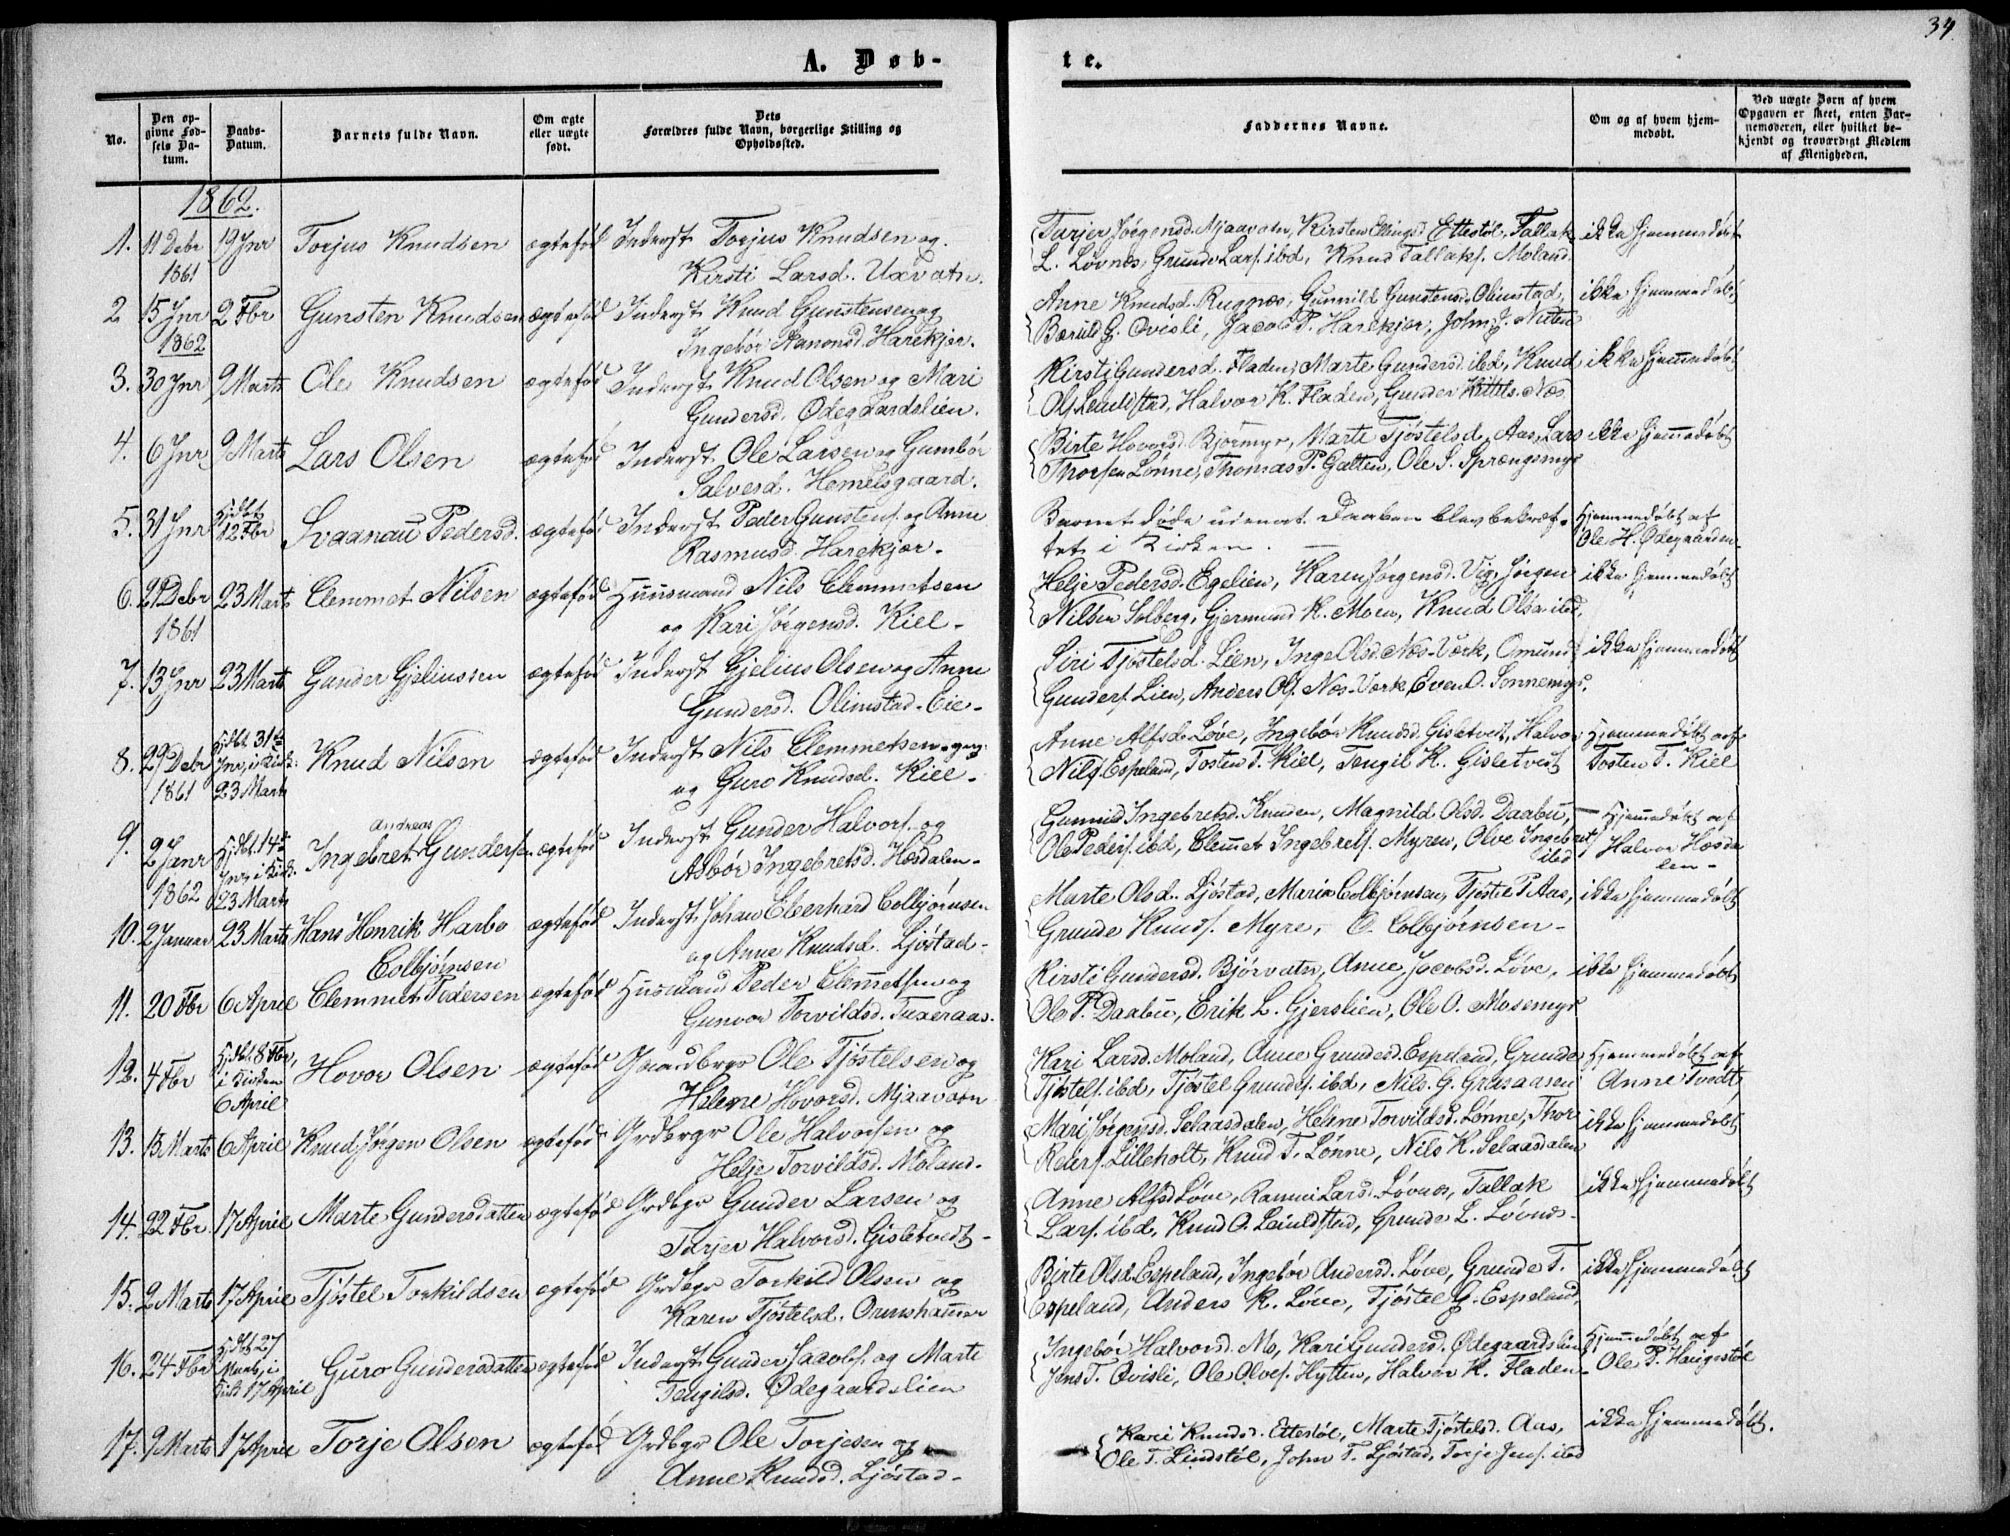 34.
A. Døb-
te.
No.
Den opgivne Fødsels Datum.
Daabs-Datum.
Barnets fulde Navn.
Om ægte eller uægte født.
Dets Forældres fulde Navn, borgerlige Stilling og Opholdssted.
Faddernes Navne.
Om og af hvem hjemmedøbt.
Ved uægte Børn af hvem Opgaven er skeet, enten Barnemoderen, eller hvilket bekjendt og troværdigt Medlem af Menigheden.
1862.
1. 11 Debr 19 Jnr Torjus Knudsen ægtefød Inderst Torjus Knudsen og
1861 Kirsti Larsd. Uxvatn.
Tarjer Jørgensd. Mjaavatn, Kirsten Ellingsd Ettestøl, Tallak ikke hjemmedøbt
L. Løvnes, Grunde Lars. ibd, Knud Tallaks. Moland.
2 15 Jnr 2 Fbr Gunsten Knudsen ægtefød Inderst Knud Gunstensen og
1862 Ingebør Aanonsd. Harekjer.
Anne Knudsd. Rugnæs, Gunnild Gunstensd. Olimstad, ikke hjemmedøbt
Bæruld G. Qvisli, Jacob P. Harekjer, John J. Nuten
3. 30 Jnr 9 Marts Ole Knudsen ægtefød Inderst Knud Olsen og Mari
Gundersd. Ødegaardslien.
Kirsti Gundersd. Fladen, Marte Gundersd. ibd, Knud ikke hjemmedøbt
Ols. Lauldstad, Halvor K. Fladen, Gunder Kittels. Næs
4. 6 Jnr 9 Marts Lars Olsen ægtefød Inderst Ole Larsen og Gumbør
Salvesd. Hemelsgaard.
Birte Hovorsd. Bjørmyr, Marte Tjøstelsd. Aas, Lars ikke hjemmedøbt
Thorsen Lønne, Thomas P. Galten, Ole S. Sprængsmyr
5. 31 Jnr Hjdbt 12 Fbr Svaanau Pedersd. ægtefød Inderst Peder Gunstens. og Anne
Rasmusd. Harekjer.
Barnet døde uden at Daaben blev bekræf- Hjemmedøbt af
tet i Kirken. Ole H. Ødegaarden
6. 29 Debr 23 Marts Clemmet Nilsen ægtefød Huusmand Nils Clemmetsen
1861 og Kari Jørgensd. Kiel.
Helje Pedersd. Egelien, Karen Jørgensd. Vig, Jørgen ikke hjemmedøbt
Nilsen Solberg, Gjermund K. Moen, Knud Olsen ibd,
7. 13 Jnr 23 Marts Gunder Gjeliussen ægtefød Inderst Gjelius Olsen og Anne
Gundersd. Olimstad-Eie.
Siri Tjøstelsd. Lien, Inge Olsd. Næs-Værk, Omund ikke hjemmedøbt
Gunders. Lien, Anders Ols. Næs-Værk, Even O. Sonnemyr.
8. 29 Debr Hjdbt 31te Jnr, i Kirk. Knud Nilsen ægtefød Inderst Nils Clemmetsen
1861 23 Marts og Guro Knudsd. Kiel.
Anne Alfsd. Løve, Ingebør Knudsd. Gisletveit, Halvor Hjemmedøbt af
Nils. Espeland, Tosten T. Kiel, Tengil K. Gisletvedt Tosten T. Kiel
9. 2 Janr Hjdbt 14de Jnr, i Kirk. Ingebret Andreas Gunders. ægtefød Inderst Gunder Halvors. og
1862 23 Marts Asbør Ingebretsd. Hæsdalen.
Gunnild Ingebretsd. Knuden, Magnild Olsd. Daabu, Hjemmedøbt af
Ole Peders. ibd, Clemmet Ingebrets. Myren, Olve Ingebrets. Halvor Hæsda-
ibd len
10. 2 Januar 23 Marts Hans Henrik Harbo ægtefød Inderst Johan Eberhard Colbjørnsen
Colbjørnsen og Anne Knudsd. Ljøstad.
Marte Olsd. Ljøstad, Marie Colbjørnsen, Tjøstel P. Aas, ikke hjemmedøbt
Grunde Knuds. Myre, O. Colbjørnsen
11. 20 Fbr 6 April Clemmet Pedersen ægtefød Husmand Peder Clemmetsen og
Gunvor Torvildsd. Tuxeraas.
Kirsti Gundersd. Bjørvatn, Anne Jacobsd. Løve, ikke hjemmedøbt
Ole P. Daabu, Erik L. Gjerslien, Ole O. Mosemyr
12. 4 Fbr Hjdbt 8 Fbr, i Kirken 6 April Hovor Olsen ægtefød Gaardbrgr Ole Tjøstelsen og
Helene Hovorsd. Mjaavatn
Kari Larsd. Moland, Anne Grundesd. Espeland, Grunde Hjemmedøbt af
Tjøstels. ibd, Tjøstel Grundes. ibd, Nils G. Graaasen Anne Tvedt
13. 13 Marts 6 April Knud Jørgen Olsen ægtefød Grdbrgr Ole Halvorsen og
Helje Torvildsd. Moland.
Mari Jørgensd. Selaasdalen, Helene Torvildsd. Lønne, Thor ikke hjemmedøbt
Reiers. Lilleholt, Knud T. Lønne, Nils K. Selaasdalen
14. 22 Fbr 17 April Marte Gundersdatter ægtefød Grdbgr Gunder Larsen og
Tarjer Halvorsd. Gisletvedt
Anne Alfsd. Løve, Larsd. Løvnes, Tallak ikke hjemmedøbt
Lars. ibd, Knud O. Lauldstad, Grunde L. Løvnes
15. 2 Marts 17 April Tjøstel Torkildsen ægtefød Grdbgr Torkild Olsen og
Karen Tjøstelsd. Ormshammer
Birte Olsd. Espeland, Ingebør Andersd. Løve, Grunde T. ikke hjemmedøbt
Espeland, Anders K. Løve, Tjøstel G. Espeland,
16. 24 Fbr Hjdbt 27 Marts, i Kirk. 17 April Guro Gundersdatter ægtefød Inderst Gunder Jacobs. og Marte
Tengilsd. Ødegaardslien
Ingebør Halvorsd. Mo, Kari Gundersd. Ødegaardslien Hjemmedøbt af
Jens T. Qvisli, Ole Olves. Hytten, Halvor K. Fladen Ole P. Haugestøl
17. 9 Marts 17 April Torje Olsen ægtefød Grdbgr Ole Torjesen og
Anne Knudsd. Ljøstad.
Kari Knudsd. Ettestøl, Marte Tjøstelsd. Aas, ikke hjemmedøbt.
Ole T. Lindstøl, John T. Ljøstad, Torje Jens. ibd